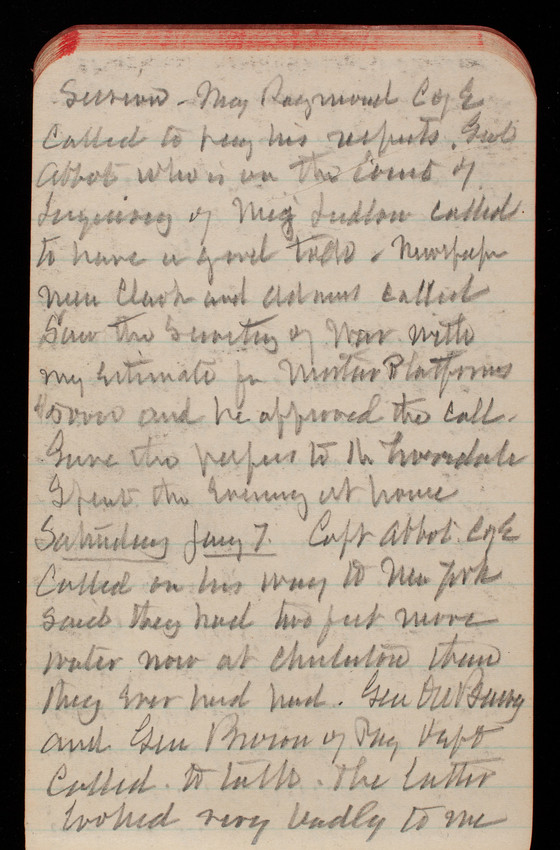 Session - Maj Raymond C of E
Called to pay his respects. Genl
Abbot who is on the Court of
Inquiry of Maj Ludlow called
to have a good talk. Newspaper
men Clark and Adams called
Saw the Secretary of War with
my estimate for Mortar Platforms
and he approved the call.
Gave the papers to Mr
Spent the Evening at home
Saturday Jany 7. Capt Abbot. C of E
Called on his way to New York
said they had two feet more
water now at Charleston than
they Ever had had. Gen
and Gen Brown of Pay Dept
Called to talk. The latter
looked very badly to me